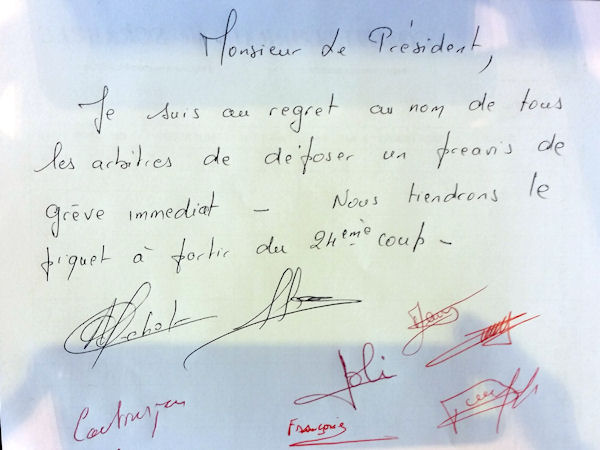 Monsieur Le Président,
Je suis au regret au nom de tous
les arbitres de déposer un preavis de
grève immediat – Nous tiendrons le
piquet à partir du 24ème coup –
Joli
Françoise